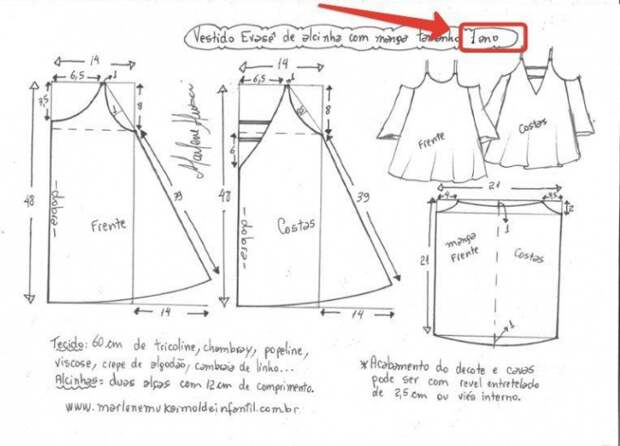 Vestido Evasê de alcinha com manga tamanho 1 ano
14
6,5
1
7,5
8
1
48
dobra
Frente
39
14
Marlene Mukai
14
6,5
1
8
6
48
dobra
Costas
39
14
Frente
Costas
21
4
3,5
2
1
21
manga
Frente
Costas
1
Tecido: 60 cm de tricoline, chambray, popeline,
viscose, crepe de algodão, cambraia de linho...
Alcinhas: duas alças com 12 cm de comprimento.
www.marlenemukaimoldeinfantil.com.br
* Acabamento do decote e cavas
pode ser com revel entretelado
de 2,5 cm ou viés interno.